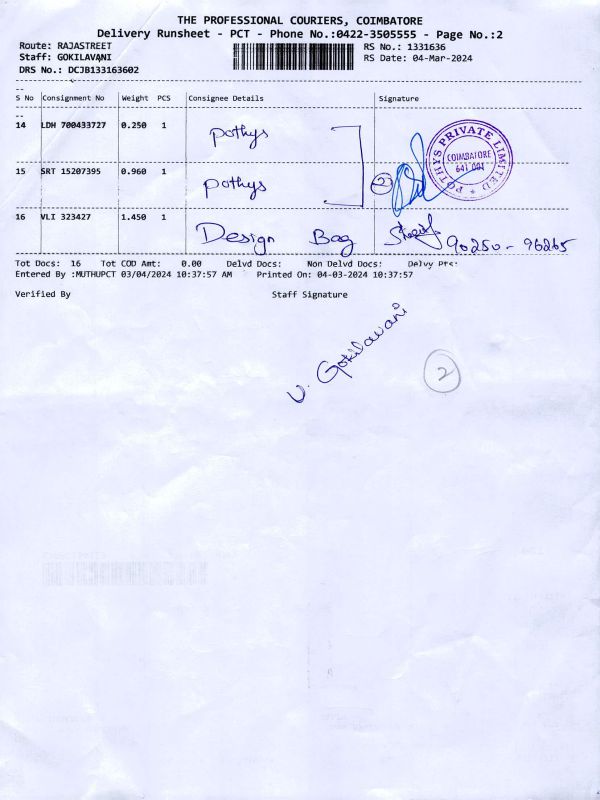 THE PROFESSIONAL COURIERS, COIMBATORE
Delivery Runsheet - PCT - Phone No.:0422-3505555 - Page No.:2
Route: RAJASTREET
RS No.: 1331636
Staff: GOKILAVANI
RS Date: 04-Mar-2024
DRS No.: DCJB133163602
S No Consignment No Weight PCS Consignee Details Signature
14 LDH 700433727 0.250 1 pothys
15 SRT 15207395 0.960 1 pothys 2
POTHYS PRIVATE LIMITED
COIMBATORE
641 001
16 VLI 323427 1.450 1 Design Bag 90250-96265
Tot Docs: 16 Tot COD Amt: 0.00 Delvd Docs: Non Delvd Docs: Delvy Pts:
Entered By :MUTHUPCT 03/04/2024 10:37:57 AM Printed On: 04-03-2024 10:37:57
Verified By Staff Signature
V. Gokilavani
2